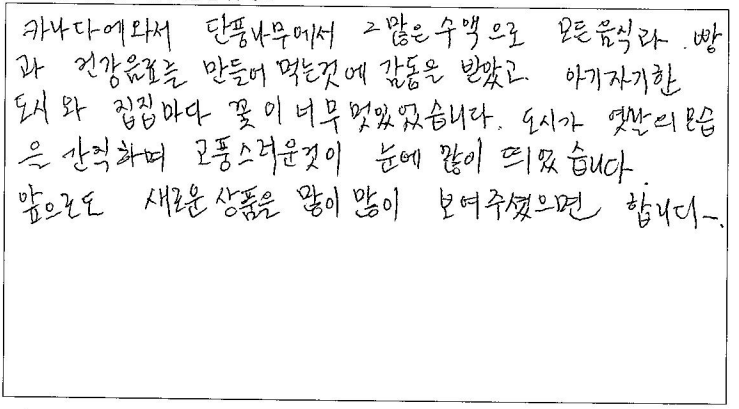 카나다에 와서 단풍나무에서 그 많은 수액으로 모든 음식과 빵
과 건강음료를 만들어 먹는것에 감동을 받았고. 아기자기한
도시와 집집마다 꽃이 너무 멋있었습니다. 도시가 옛날의 모습
을 간직하며 고풍스러운것이 눈에 많이 띄었습니다.
앞으로도 새로운 상품을 많이 많이 보여주셨으면 합니다~.